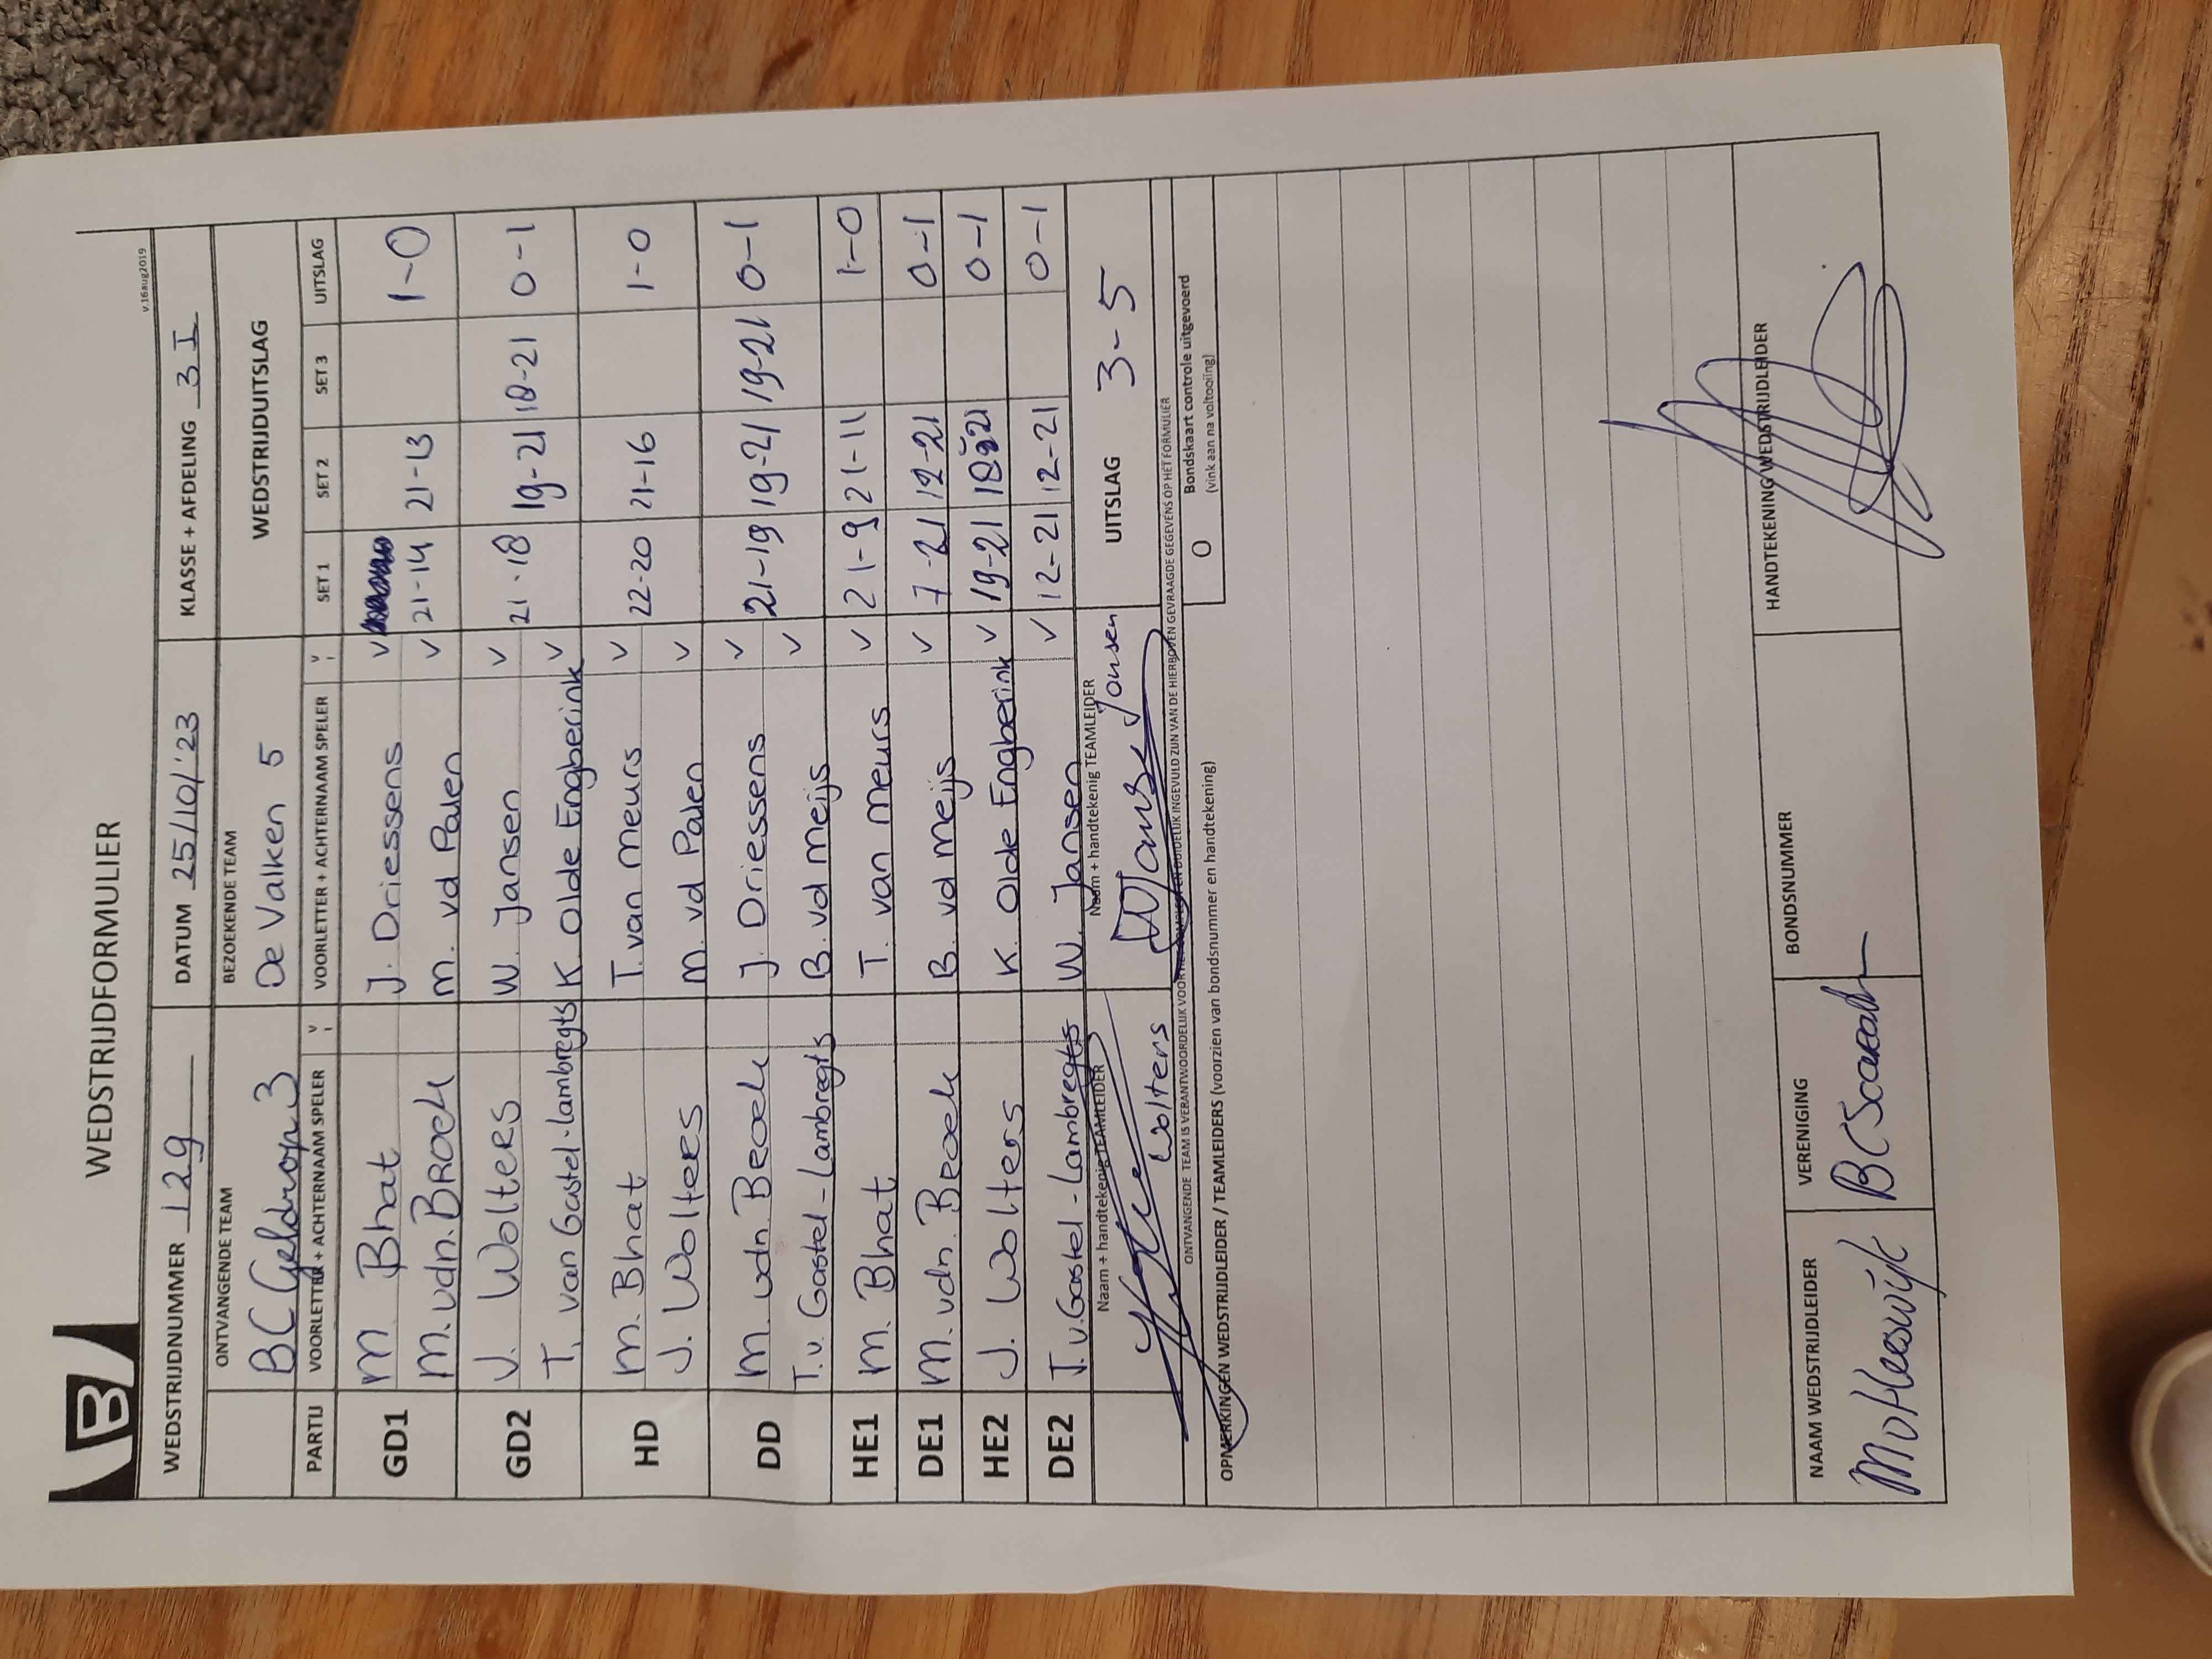 B
WEDSTRIJDFORMULIER
v.16aug2019
WEDSTRIJDNUMMER 129 DATUM 25/10/'23 KLASSE + AFDELING 3 I
ONTVANGENDE TEAM BEZOEKENDE TEAM WEDSTRIJDUITSLAG
BC Geldrop 3 De Valken 5
PARTIJ VOORLETTER + ACHTERNAAM SPELER v VOORLETTER + ACHTERNAAM SPELER v SET 1 SET 2 SET 3 UITSLAG
GD1 M Bhat J. Driessens v
M. vdn. BROEK M. vd Palen v 21-14 21-13 1-0
GD2 J. Wolters W. Jansen v 21-18 19-21 18-21 0-1
T. van Gastel-lambregts K. Olde Engberink v
HD M. Bhat T. van Meurs v 22-20 21-16 1-0
J. Wolters M. vd Palen v
DD M. vdn. Broek J. Driessens v 21-19 19-21 19-21 0-1
T. v. Gastel-Lambregts B. vd Meijs v
HE1 M. Bhat T. van Meurs v 21-9 21-11 1-0
DE1 M. vdn. Broek B. vd Meijs v 7-21 12-21 0-1
HE2 J. Wolters K. Olde Engberink v 19-21 18-21 0-1
DE2 T. v. Gastel-Lambregts W. Jansen v 12-21 12-21 0-1
Naam + handtekenig TEAMLEIDER Naam + handtekenig TEAMLEIDER UITSLAG 3-5
Wolters WJansen Jansen
ONTVANGENDE TEAM IS VERANTWOORDELIJK VOOR HET COMPLEET EN DUIDELIJK INGEVULD ZIJN VAN DE HIERBOVEN GEVRAAGDE GEGEVENS OP HET FORMULIER
O Bondskaart controle uitgevoerd
(vink aan na voltooiing)
OPMERKINGEN WEDSTRIJDLEIDER / TEAMLEIDERS (voorzien van bondsnummer en handtekening)
NAAM WEDSTRIJDLEIDER VERENIGING BONDSNUMMER HANDTEKENING WEDSTRIJDLEIDER
MvHeeswijk